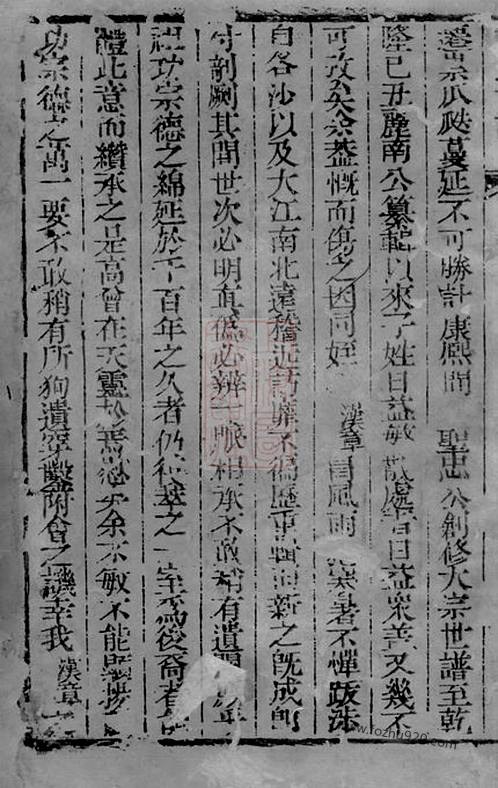 遷宗瓜瓞蔓延不可勝計康熙間 聖思公創修大宗世譜至乾
隆己丑麗南公纂輯以來子姓日益敏散處者日益衆善又幾不
可攷矣余蓋慨而傷之因同姪 漢章冒風雨 寒暑不憚跋涉
自各沙以及大江南北遠稽近訪靡不徧歷重輯而新之既成即
付剞劂其間世次必明眞僞必辨一眽相承不敢稍有遺
祖功宗德之綿延於千百年之久者仍彼越之一室爲後裔者
體此意而纘承之是高曾在天靈於余不敏不能
功宗德之萬一要不敢稍有所狥遺穿鑿附會之譏幸我 漢章
www.fozhu920.com